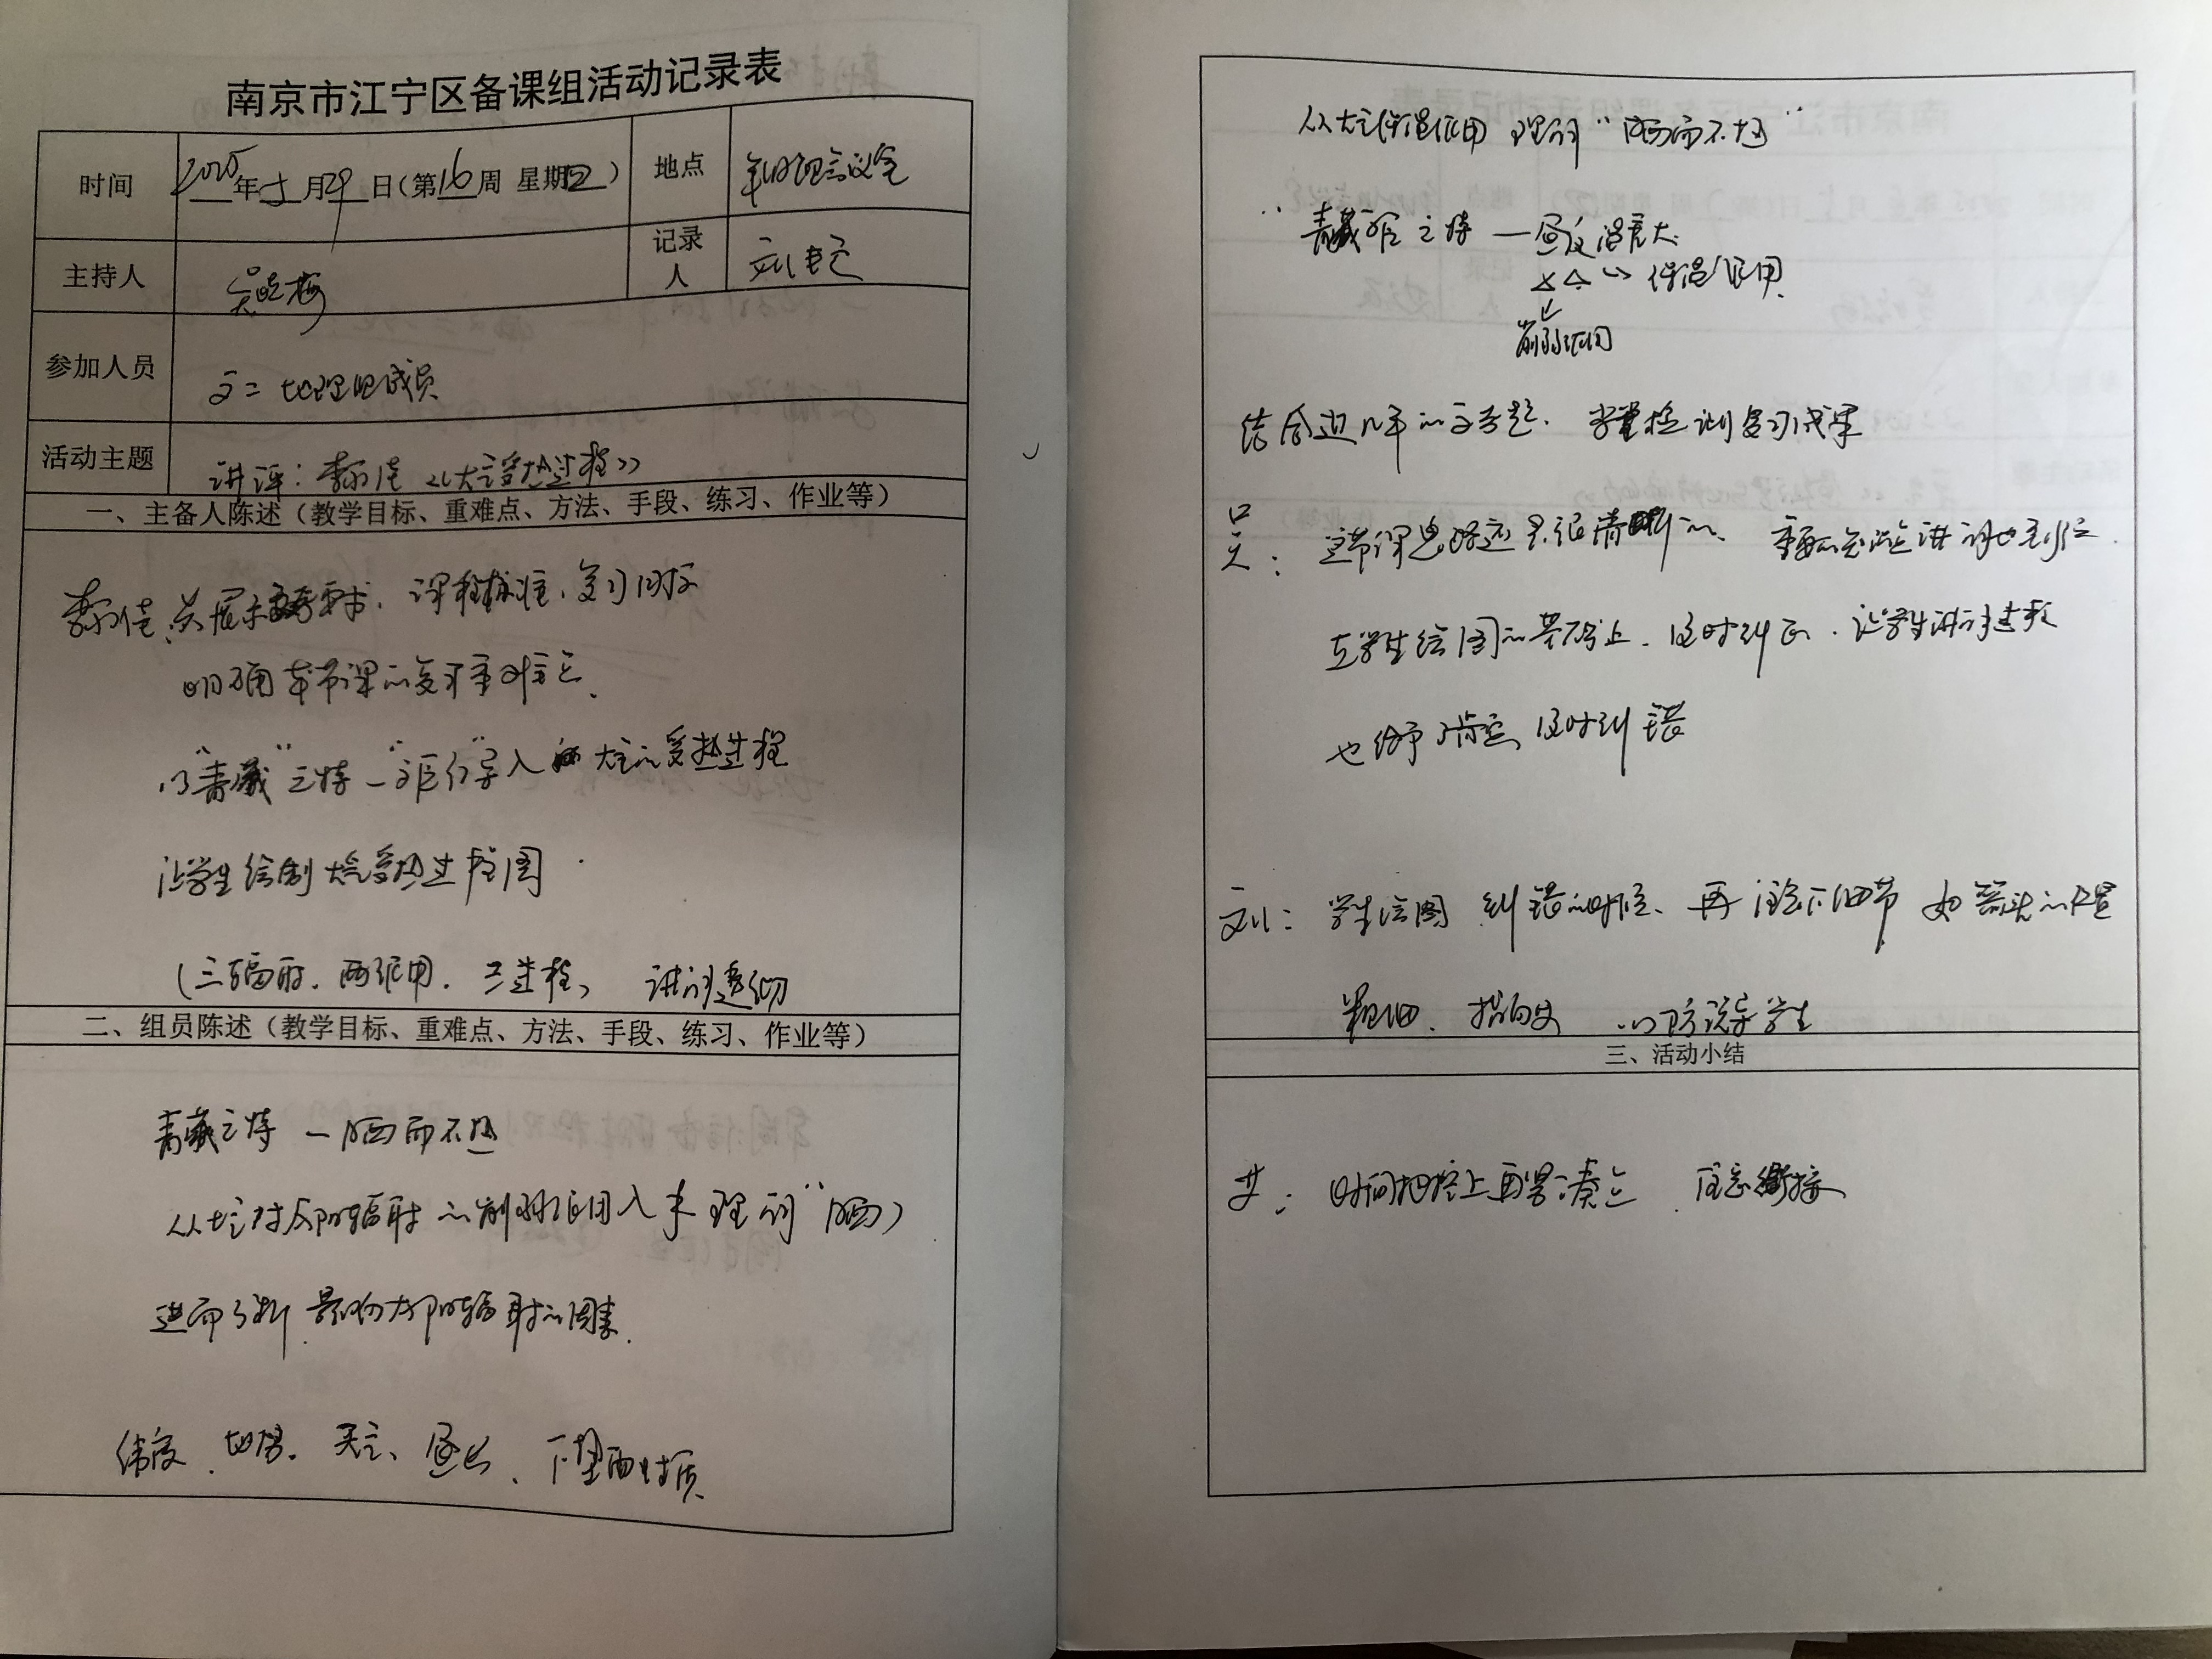 南京市江宁区备课组活动记录表
时间 2025年5月29日(第16周 星期四) 地点 年级组会议室
主持人 吴晓梅 记录人 刘
参加人员 高二地理组成员
活动主题 讲评:李佳《大气受热过程》
一、主备人陈述(教学目标、重难点、方法、手段、练习、作业等)
李佳 展示 要求、课程标准、复习目标
明确本节课的复习重难点、
以"青藏"之特—"高原行"导入 大气的受热过程
让学生绘制大气受热过程图
(三辐射、两作用、三过程) 讲解透彻
二、组员陈述(教学目标、重难点、方法、手段、练习、作业等)
青藏之特 — 晒而不热
从大气对太阳辐射的削弱作用入来理解"晒"
进而分析影响太阳辐射的因素.
纬度、地势、天气、昼长、下垫面性质
从大气保温作用 理解"晒而不热"
"青藏"之特 — 昼夜温差大
保温作用
削弱作用
结合近几年的高考题、 检测复习成果
吴: 这节课思路还是很清晰的、 重要知识点讲解也到位.
在学生绘图的基础上、及时纠正、让学生讲解过程
也给予了肯定、及时纠错
刘: 学生绘图 纠错的时候、再注意下细节 如箭头的位置
粗细、指向 以防误导学生
三、活动小结
时间把控上再紧凑点 注意衔接